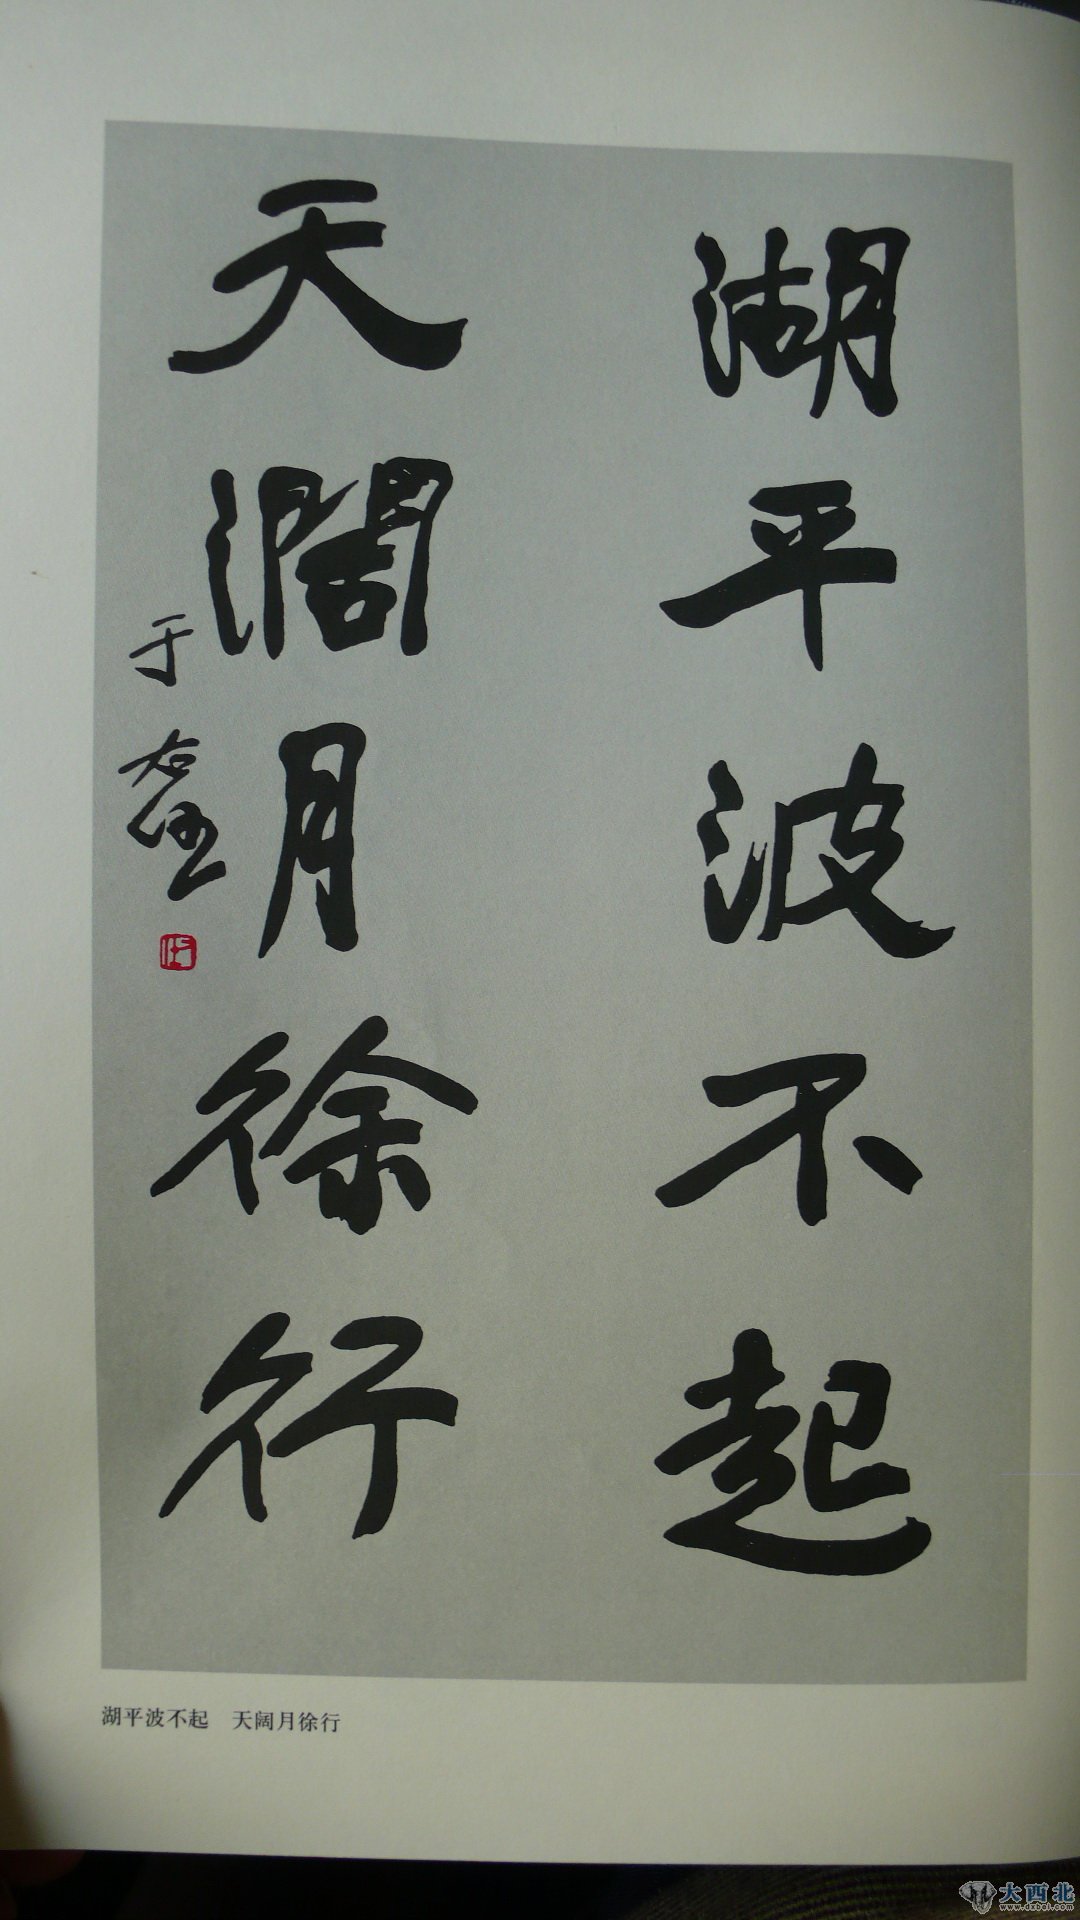 湖平波不起
天濶月徐行
于右任
湖平波不起　天阔月徐行
大西北
www.dxbei.com